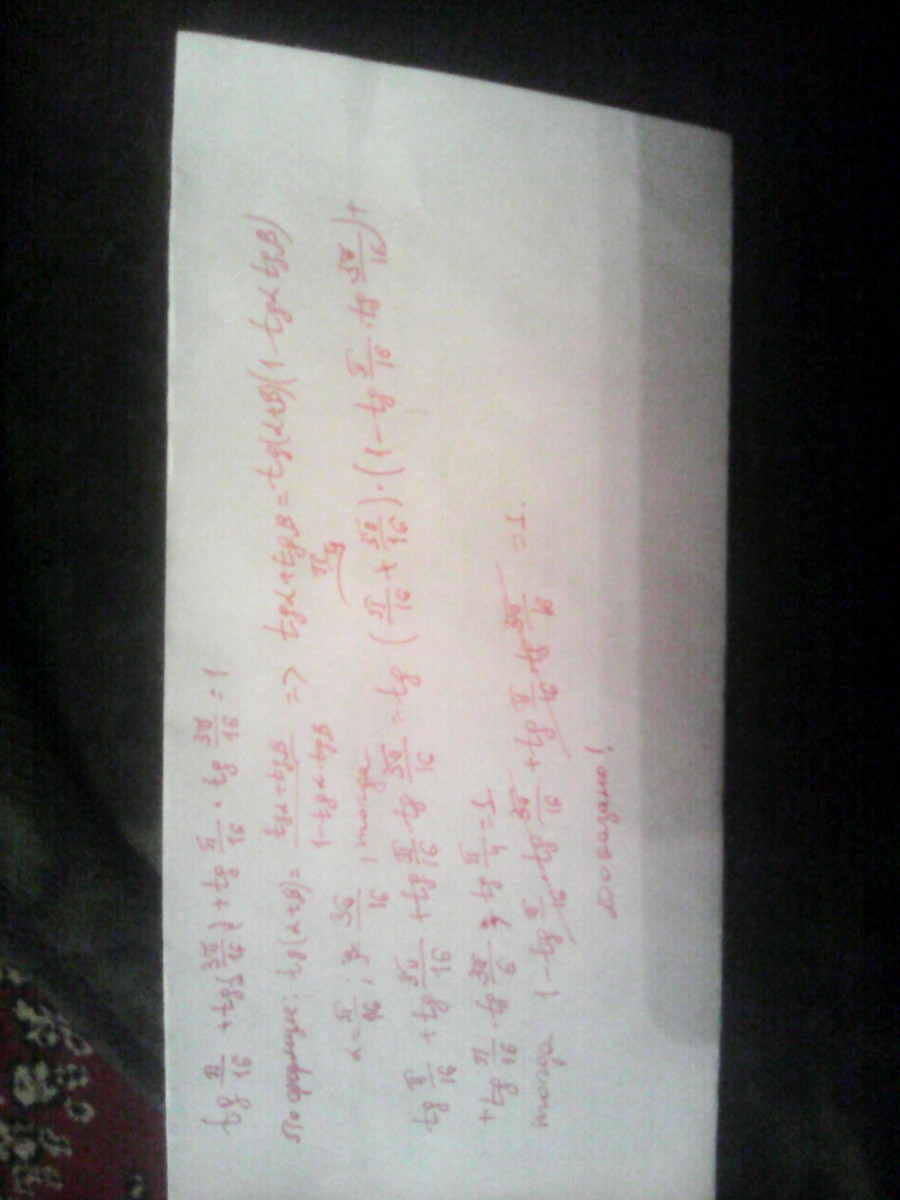 tg π/16 + tg(3π/16) + tg π/16 · tg 3π/16 = 1
По формуле: tg(α+β) = (tgα+tgβ)/(1-tgα·tgβ) => tgα+tgβ = tg(α+β)(1-tgα tgβ)
α = π/16; y = 3π/16, тогда π/4
tg π/16 + tg 3π/16 + tg π/16 · tg 3π/16 = tg (π/16 + 3π/16) · (1 - tg π/16 · tg 3π/16) +
+ tg π/16 · tg 3π/6 ; tg π/4 = 1
тогда 1 - tg π/16 · tg 3π/16 + tg π/16 · tg 3π/16 = 1.
Доказано!